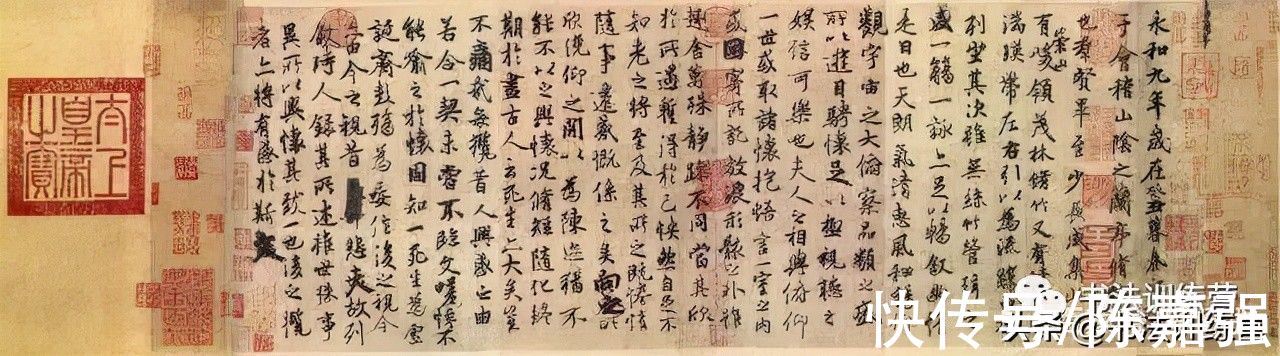 永和九年歲在癸丑暮春
于會稽山陰之蘭亭脩
也群賢畢至少長咸集
有崇山峻領茂林脩竹又有清
湍暎帶左右引以為流觴
列坐其次雖無絲竹管弦
盛一觴一詠亦足以暢敘幽
是日也天朗氣清惠風和
觀宇宙之大俯察品類之盛
所以遊目騁懷足以極視聽之
娛信可樂也夫人之相與俯仰
一世或取諸懷抱悟言一室之內
或因寄所託放浪形骸之外雖
趣舍萬殊靜躁不同當其欣
於所遇蹔得於己怏然自足不
知老之將至及其所之既惓情
隨事遷感慨係之矣向之所
欣俛仰之閒以為陳迹猶不
能不以之興懷況脩短隨化終
期於盡古人云死生亦大矣豈
不痛哉每攬昔人興感之由
若合一契未嘗不臨文嗟悼不
能喻之於懷固知一死生為虛
誕齊彭殤為妄作後之視今
亦由今之視昔悲夫故列
敘時人錄其所述雖世殊事
異所以興懷其致一也後之攬
者亦將有感於斯文
太上皇帝之寶
书法训练营
快传号/陈嘉强